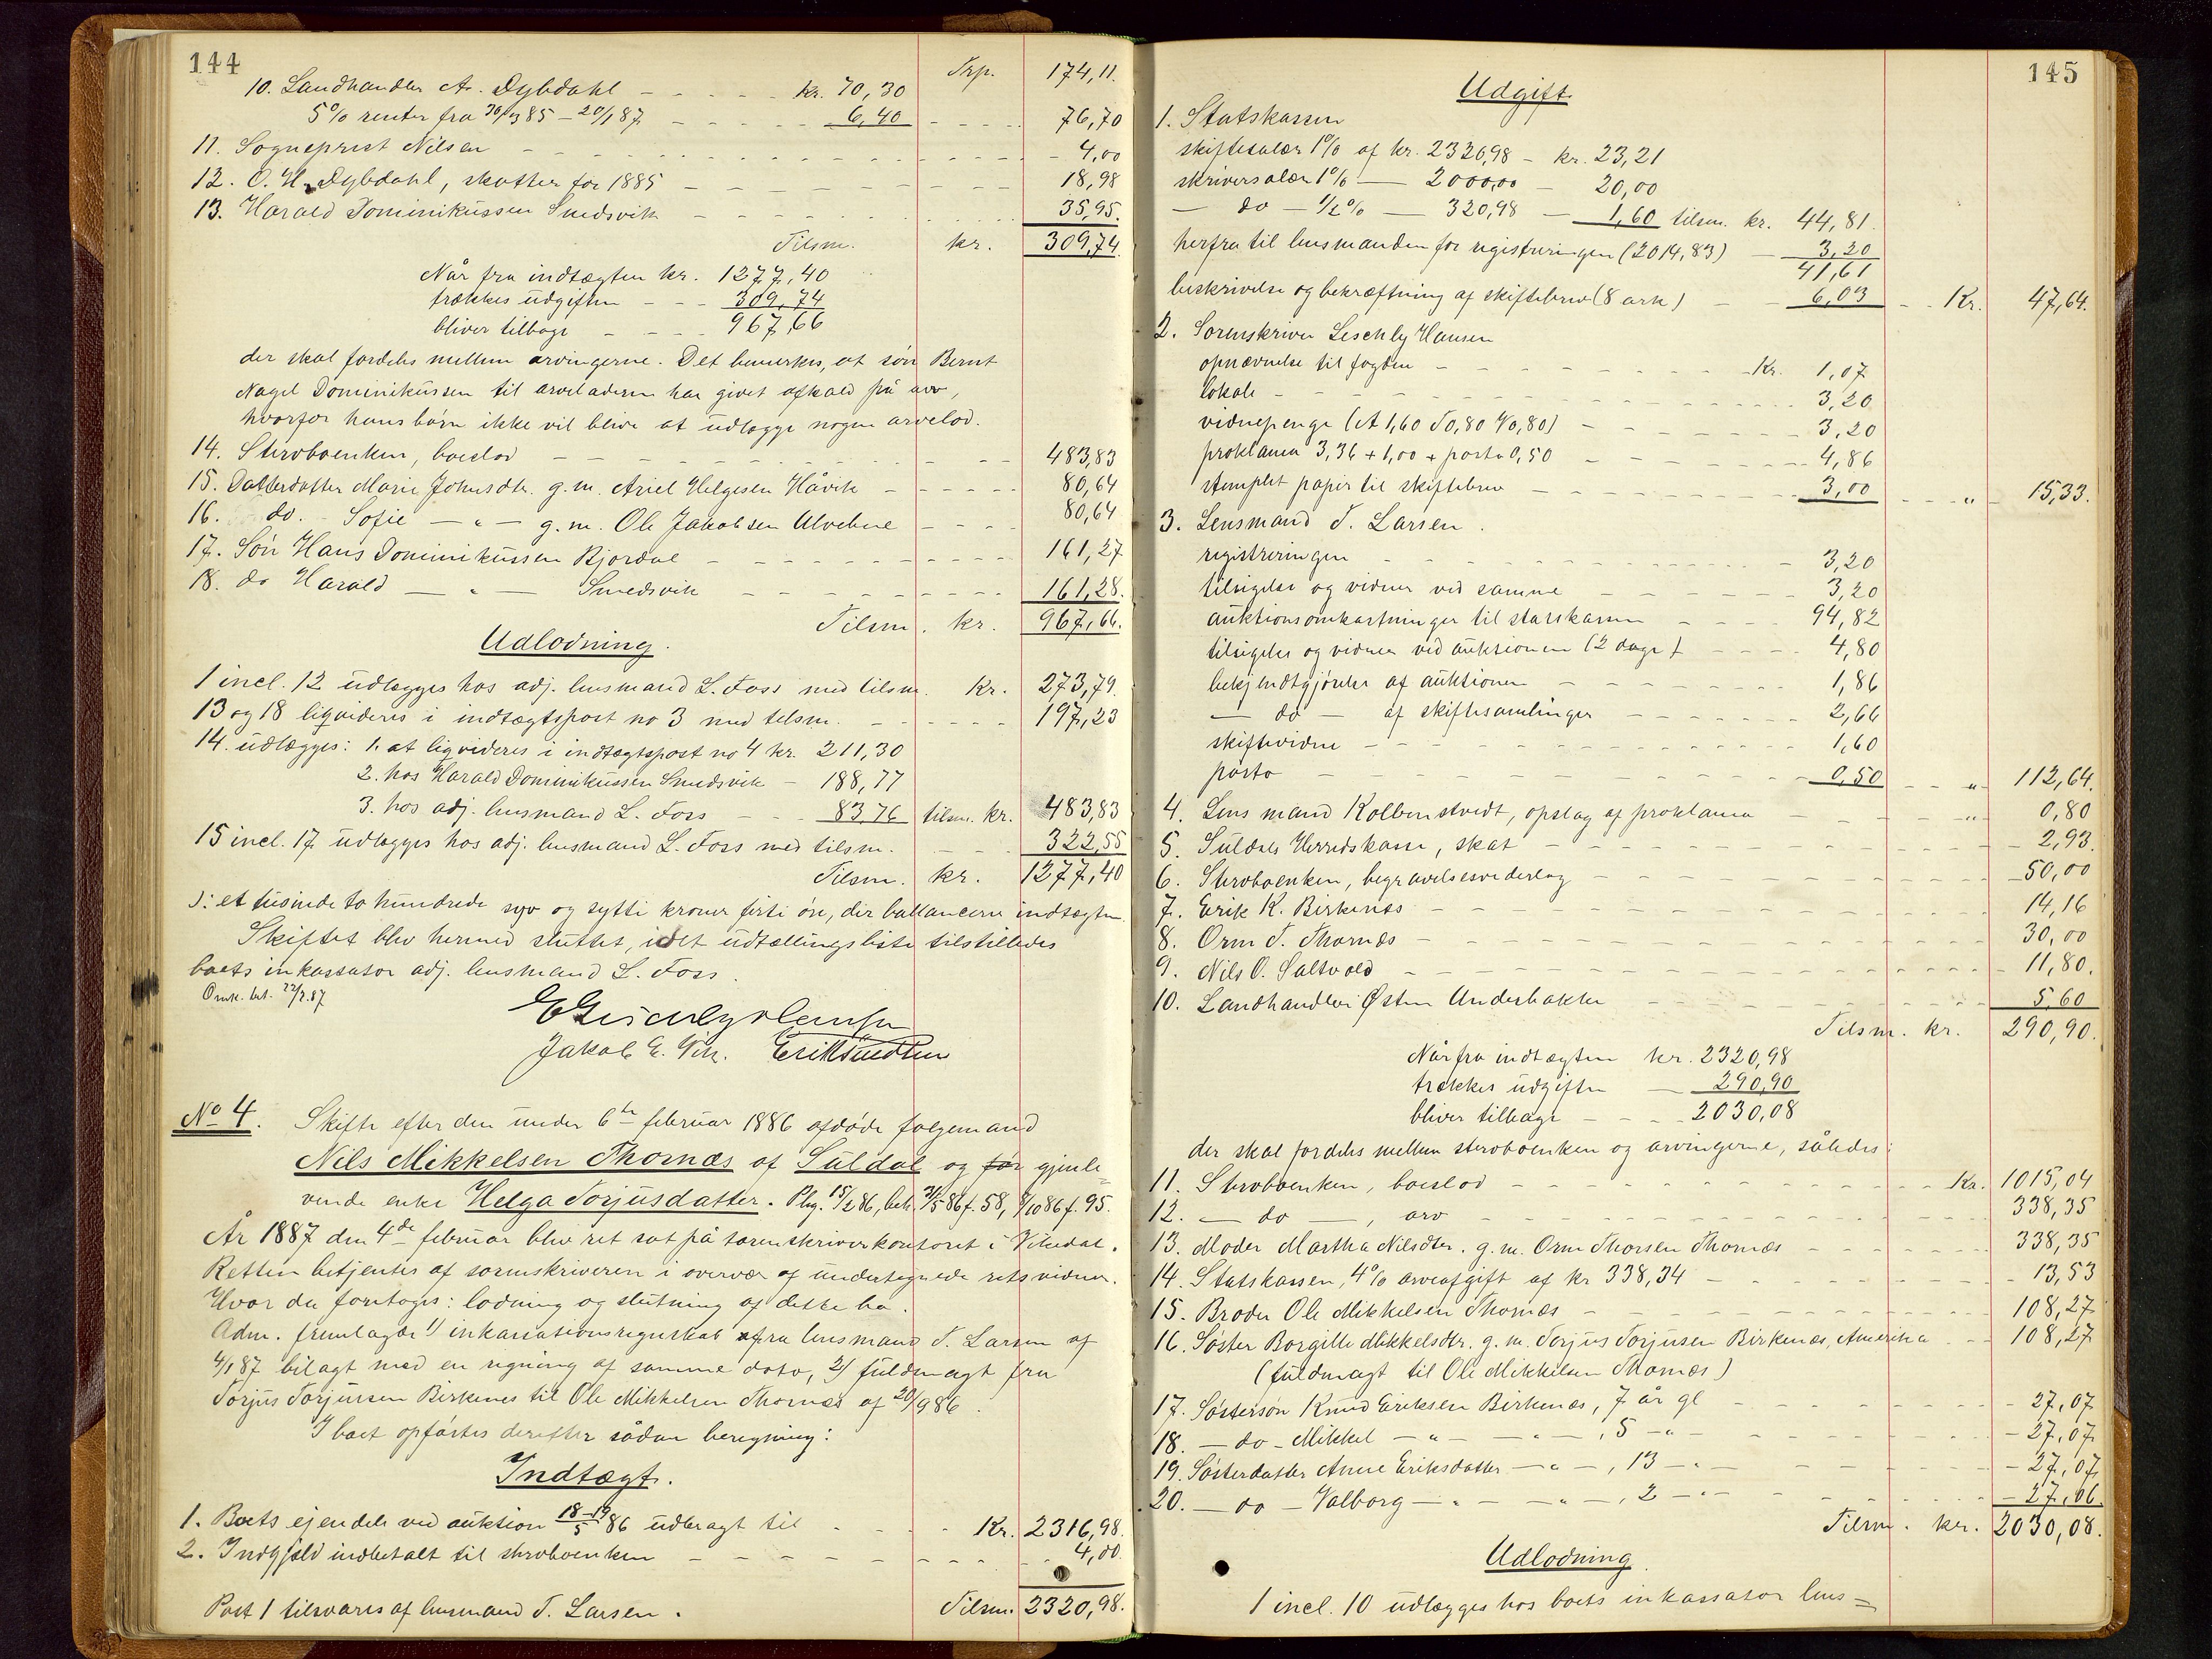 144
Trp. 174,11.
10. Landhandler A. Dybdahl - - - - - kr. 70,30
5% renter fra 30/3 85 - 20/1 87 - - - - - 6,40 - - - - 76,70
11. Sogneprest Nilsen - - - - - - - - 4,00
12. O. H. Dybdahl, skatter for 1885 - - - - - - 18,98
13. Harald Dominikussen Smedsvik - - - - - - 35,95.
Tilsm. kr. 309,74
Når fra indtægten kr. 1277,40
trækkes udgiften - - - 309,74
bliver tilbage - - - - 967,66
der skal fordeles mellem arvingerne. Det bemerkes, at søn Bernt
Nagel Dominikussen til arveladeren har givet afkald på arv,
hvorfor hans børn ikke vil blive at udlægge nogen arvelod.
14. Stervboenken, boeslod - - - - - - - 483,83
15. Datterdatter Marie Johnsdtr. g. m. Ariel Helgesen Håvik - - - - 80,64
16. do. - Sofie - „ - g. m. Ole Jakobsen Alvehne - - - - 80,64
17. Søn Hans Dominikussen Bjordal - - - - - - - 161,27
18. do Harald - „ - Smedsvik - - - - - - - 161,28.
Tilsm. kr. 967,66.
Udlodning.
1 incl. 12 udlægges hos adj. lensmand L. Foss med tilsm. Kr. 273,79.
13 og 18 liqvideres i indtægtspost no 3 med tilsm. - - - - - 197,23
14. udlægges: 1. at liqvideres i indtægtspost no 4 kr. 211,30
2. hos Harald Dominikussen Smedsvik - 188,77
3. hos adj. lensmand L. Foss - - - 83,76 tilsm. kr. 483,83
15 incl. 17 udlægges hos adj. lensmand L. Foss med tilsm. - - - 322,55
Tilsm. kr. 1277,40
ɔ: et tusinde to hundrede syv og sytti kroner firti øre, der ballancerer indtægten.
Skiftet blev hermed sluttet, idet udtællingsliste tilstilledes
boets inkassator adj. lensmand L. Foss.
Omk. bet. 22/2.87
Jakob E. Vik.
No 4. Skifte efter den under 6te februar 1886 afdøde følgemand
Nils Mikkelsen Thornæs af Suldal og før gjenle=
vende enke Helga Torjusdatter. Phg. 15/2 86, beh. 31/5 86 f. 58, 8/10 86 f. 95.
År 1887 den 4de februar blev ret sat på sorenskriverkontoret i Vikedal.
Retten betjentes af sorenskriveren i overvær af undertegnede retsvidner.
Hvor da foretoges: lodning og slutning af dette bo.
Adm. fremlagde 1) inkassationsregnskab fra lensmand T. Larsen af
4/1 87 bilagt med en regning af samme dato, 2) fuldmagt fra
Torjus Torjussen Birkenes til Ole Mikkelsen Thornæs af 20/9 86.
I boet opførtes derefter sådan beregning:
Indtægt.
1. Boets eiendele ved auktion 18-19/5 86 udbragt til - - - - Kr. 2316,98.
2. Indgjæld indbetalt til stervboenken - - - - - - 4,00.
Post 1 tilsvares af lensmand T. Larsen. Tilsm. 2320,98.
145
Udgift
1. Statskassen
skiftesalær 1% af kr. 2320,98 - kr. 23,21
skriversalær 1% - 2000,00 - 20,00
- do - 1/2% - 320,98 - 1,60 tilsm. kr. 44,81.
herfra til lensmanden for registreringen (2014,83) - 3,20
41,61
beskrivelse og bekræftning af skiftebrev (8 ark) - - 6,03 - - Kr. 47,64.
2. Sorenskriver Eeschly Hansen
opnævnelse til fogden - - - - - - - Kr. 1,07
lokale - - - - - - - - 3,20
vidnepenge (A 1,60 J 0,80 V 0,80) - - - - - 3,20
proklama 3,36 + 1,00 + porto 0,50 - - - - - 4,86
stemplet papir til skiftebrev - - - - - - 3,00 - - - „ - 15,33.
3. Lensmand T. Larsen.
registreringen - - - - - - - - 3,20
tilsigelse og vidner ved samme - - - - - - 3,20
auktionsomkostninger til statskassen - - - - 94,82
tilsigelse og vidner ved auktionen (2 dage) - - - - 4,80
bekjendtgjørelse af auktionen - - - - - - 1,86
- do - af skiftesamlinger - - - - - 2,66
skiftevidne - - - - - - - - 1,60
porto - - - - - - - - 0,50 - - „ - 112,64.
4. Lensmand Kolbenstvedt, opslag af proklama - - - - - „ - 0,80
5. Suldals Herredskasse, skat - - - - - - - - 2,93.
6. Stervboenken, begravelsesvederlag - - - - - - - - 50,00
7. Erik K. Birkenæs - - - - - - - - - 14,16
8. Orm T. Thornæs - - - - - - - - - 30,00
9. Nils O. Saltvold - - - - - - - - - 11,80.
10. Landhandler Østen Underbakke - - - - - - - - 5,60
Tilsm. kr. 290,90.
Når fra indtægten kr. 2320,98
trækkes udgiften - 290,90
bliver tilbage - - - 2030,08
der skal fordeles mellem stervboenken og arvingerne, således:
11. Stervboenken, boeslod - - - - - - - - Kr. 1015,04
12. - do - , arv - - - - - - - - 338,35
13. Moder Martha Nilsdtr. g. m. Orm Thorsen Thornæs - - - - - 338,35
14. Statskassen, 4% arveafgift af kr 338,34 - - - - - - 13,53
15. Broder Ole Mikkelsen Thornæs - - - - - - - - 108,27
16. Søster Borgille Mikkelsdtr. g. m. Torjus Torjusen Birkenæs, Amerika - - 108,27
(fuldmagt til Ole Mikkelsen Thornæs)
17. Søstersøn Knud Eriksen Birkenæs, 7 år gl - - - - - - 27,07
18. - do - Mikkel - „ - - „ - , 5 - „ - - - - - 27,07
19. Søsterdatter Anne Eriksdatter - „ - , 13 - „ - - - - - 27,07
20. - do - Valborg - „ - - „ - , 2 - „ - - - - - 27,06.
Tilsm. kr. 2030,08.
Udlodning.
1 incl. 10 udlægges hos boets inkassator lens=